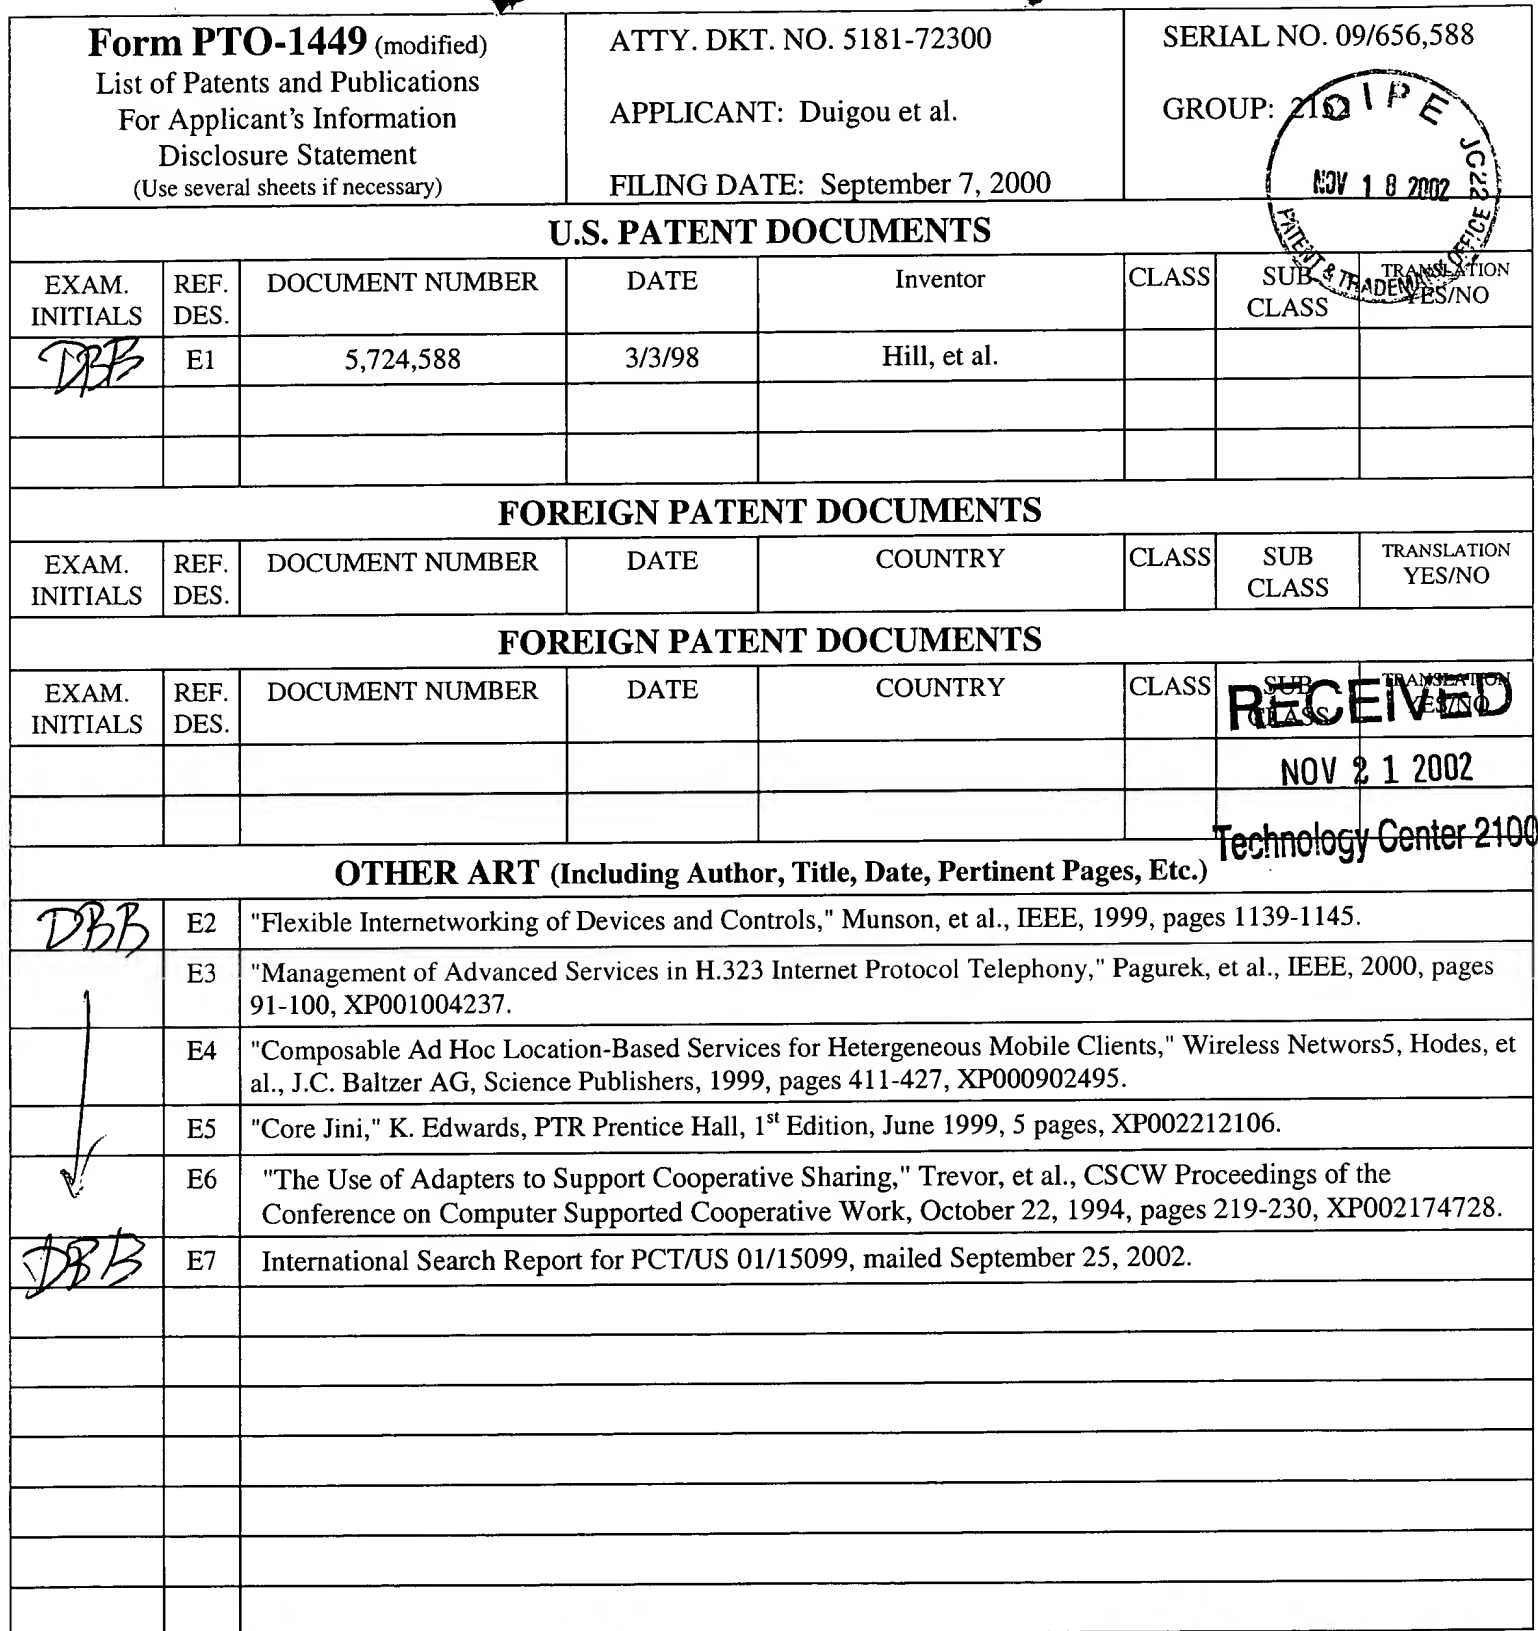 Form PTO-1449 (modified)
List of Patents and Publications
For Applicant's Information
Disclosure Statement
(Use several sheets if necessary)
ATTY. DKT. NO. 5181-72300
APPLICANT: Duigou et al.
FILING DATE: September 7, 2000
SERIAL NO. 09/656,588
GROUP: 2152
OIPE JC22
NOV 18 2002
PATENT & TRADEMARK OFFICE
U.S. PATENT DOCUMENTS
EXAM. INITIALS REF. DES. DOCUMENT NUMBER DATE Inventor CLASS SUB CLASS TRANSLATION YES/NO
DBB E1 5,724,588 3/3/98 Hill, et al.
FOREIGN PATENT DOCUMENTS
EXAM. INITIALS REF. DES. DOCUMENT NUMBER DATE COUNTRY CLASS SUB CLASS TRANSLATION YES/NO
FOREIGN PATENT DOCUMENTS
EXAM. INITIALS REF. DES. DOCUMENT NUMBER DATE COUNTRY CLASS SUB CLASS TRANSLATION YES/NO
RECEIVED
NOV 21 2002
Technology Center 2100
OTHER ART (Including Author, Title, Date, Pertinent Pages, Etc.)
DBB E2 "Flexible Internetworking of Devices and Controls," Munson, et al., IEEE, 1999, pages 1139-1145.
E3 "Management of Advanced Services in H.323 Internet Protocol Telephony," Pagurek, et al., IEEE, 2000, pages
91-100, XP001004237.
E4 "Composable Ad Hoc Location-Based Services for Hetergeneous Mobile Clients," Wireless Networs5, Hodes, et
al., J.C. Baltzer AG, Science Publishers, 1999, pages 411-427, XP000902495.
E5 "Core Jini," K. Edwards, PTR Prentice Hall, 1st Edition, June 1999, 5 pages, XP002212106.
E6 "The Use of Adapters to Support Cooperative Sharing," Trevor, et al., CSCW Proceedings of the
Conference on Computer Supported Cooperative Work, October 22, 1994, pages 219-230, XP002174728.
DBB E7 International Search Report for PCT/US 01/15099, mailed September 25, 2002.